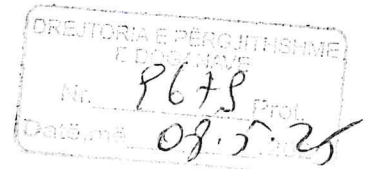 DREJTORIA E PËRGJITHSHME
E DOGANAVE
Nr. 9679 Prot.
Datë, më 08.5.25